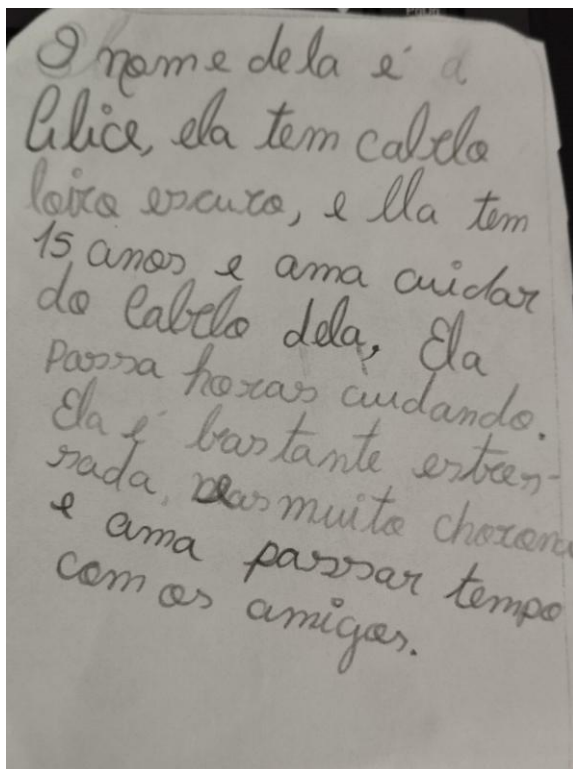 O nome dela é a
Alice, ela tem cabelo
loiro escuro, e lla tem
15 anos e ama cuidar
do cabelo dela, Ela
passa horas cuidando.
Ela é bastante estres-
sada, mas muito chorona
e ama passar tempo
com os amigos.